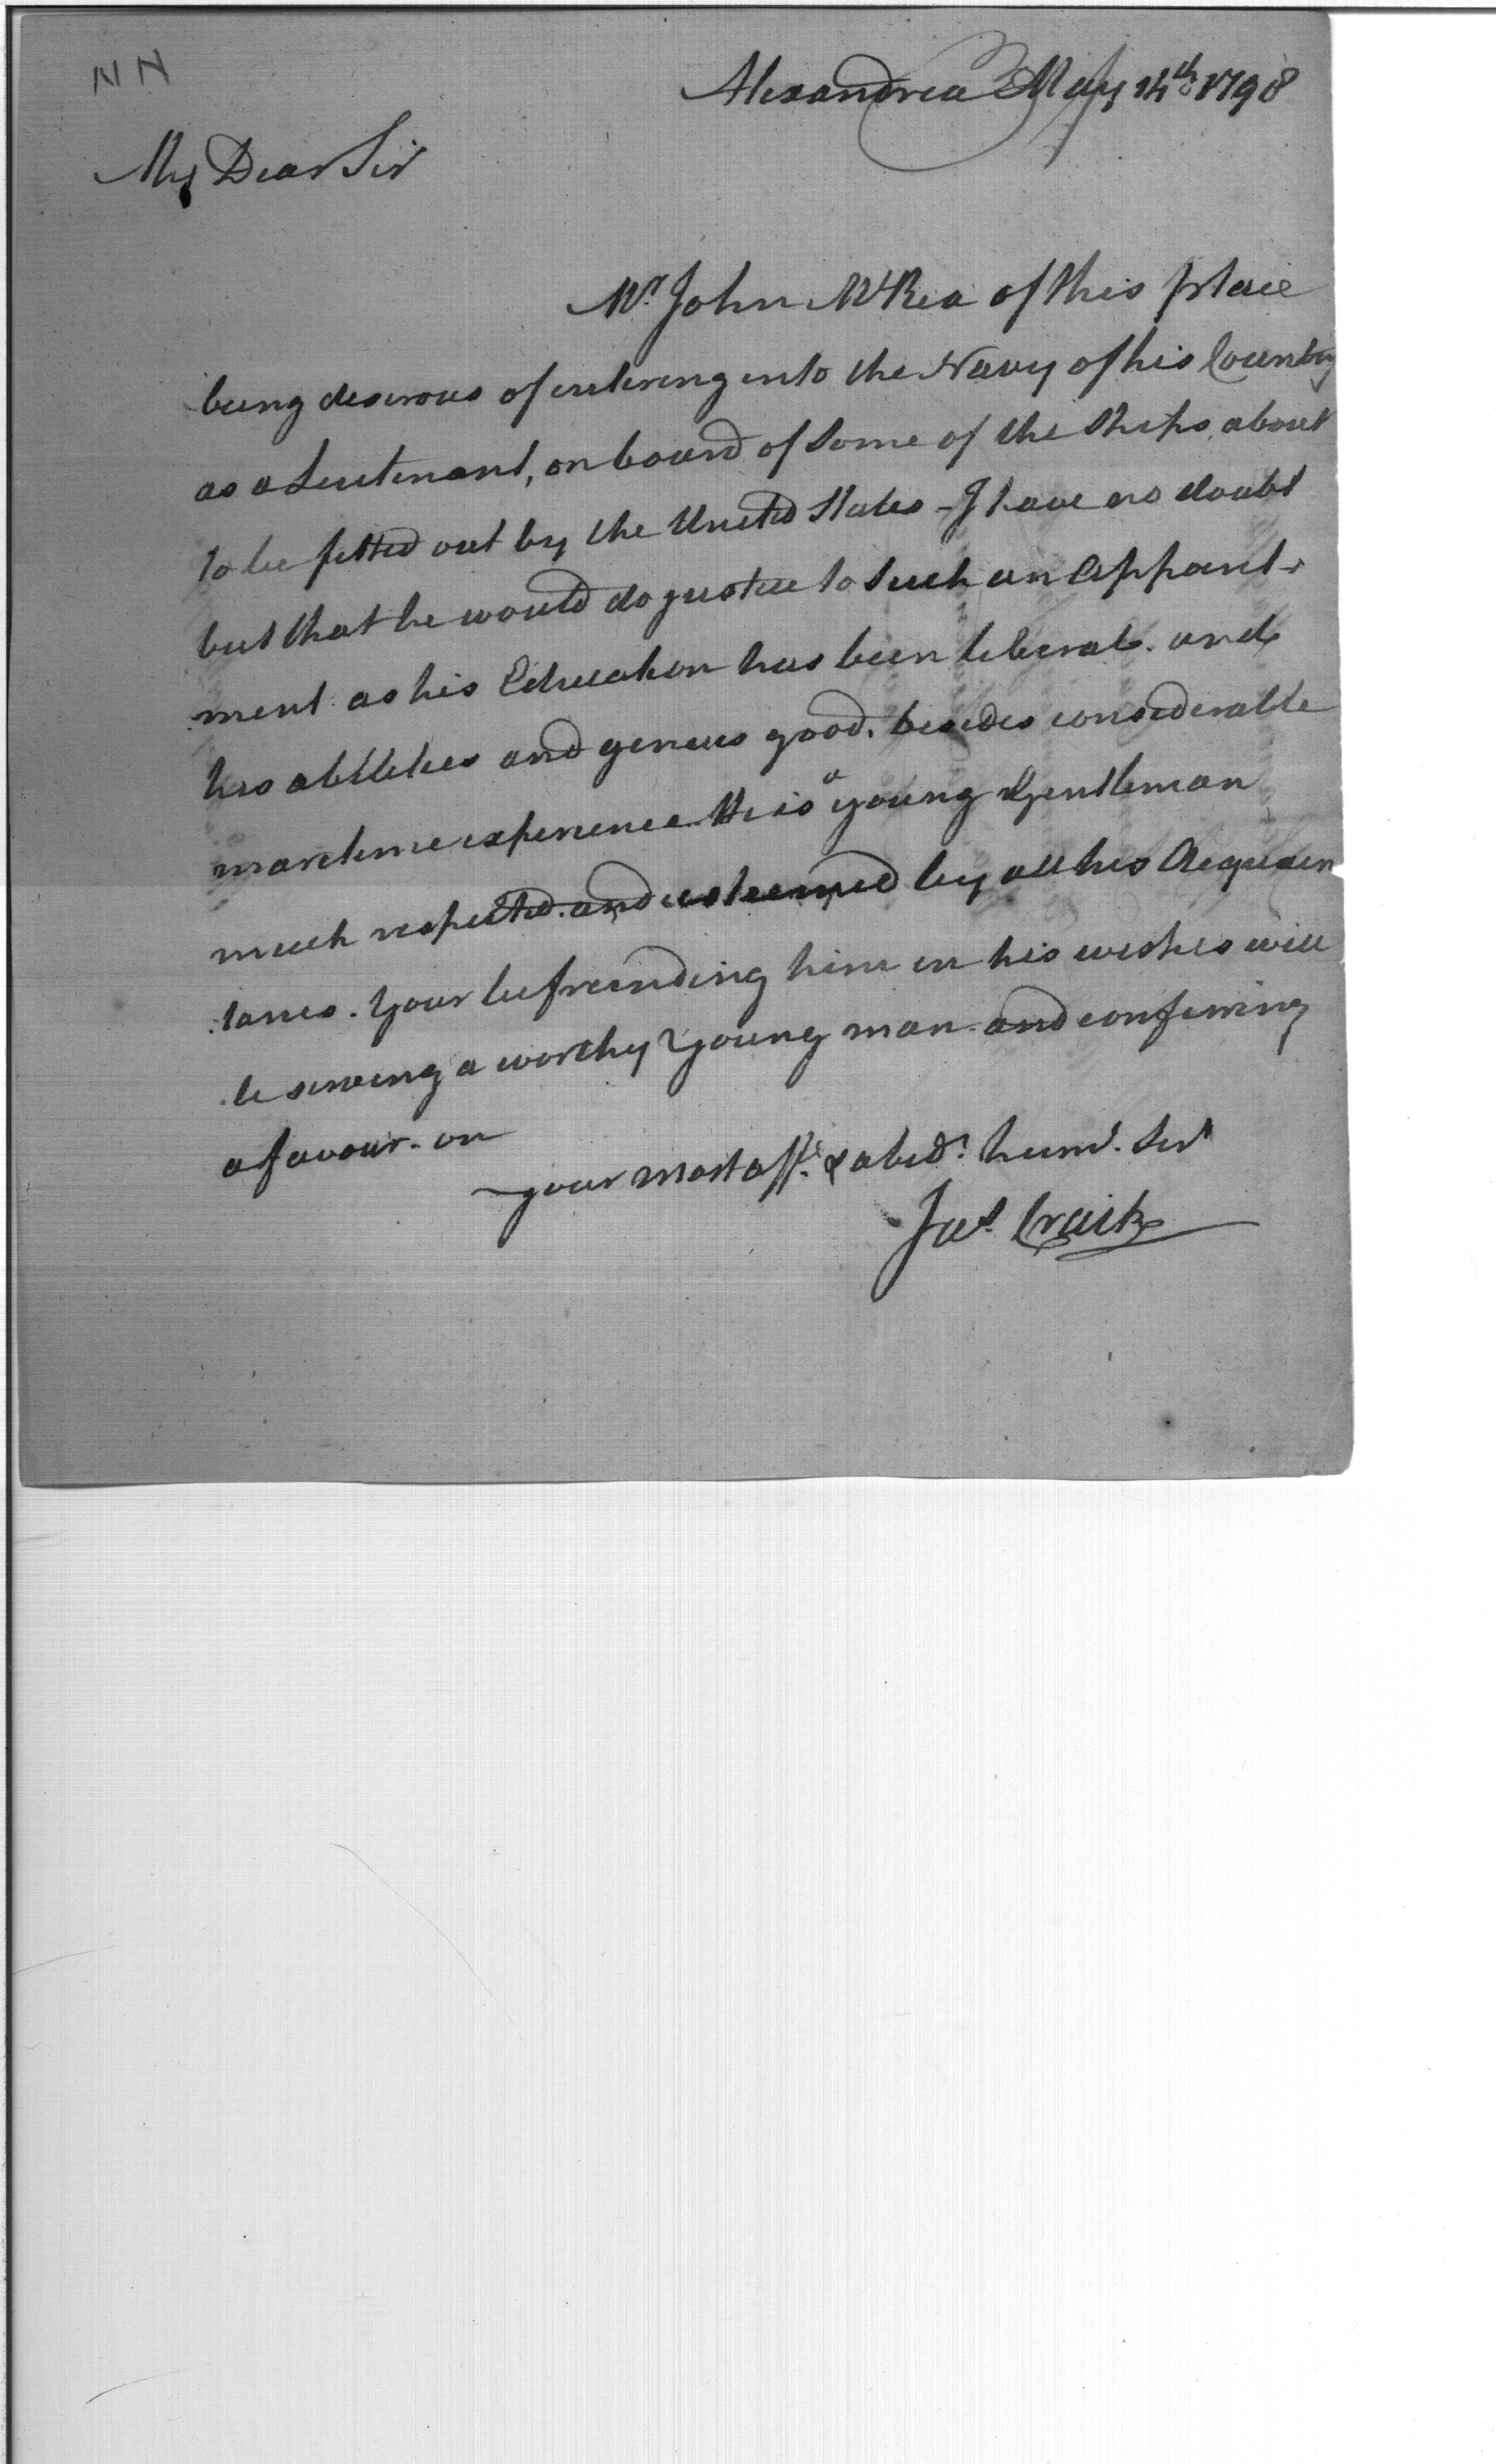 NN
Alexandria May 14th 1798
My Dear Sir
Mr. John McRea of this place
being desirous of entering into the Navy of his Country
as a Lieutenant, on board of some of the Ships, about
to be fitted out by the United States - I have no doubt
but that he would do justice to such an Appoint-
ment as his Education has been liberal. and
his abilities and genius good. besides considerable
maretime experience. He is a young Gentleman
much respected. and esteemed by all his Acquain
:tances. Your befreinding him in his wishes will
be serving a worthy Young man - and conferring
a favour - on
your most afft. & obedt. humb. Sert
Jas. Craik